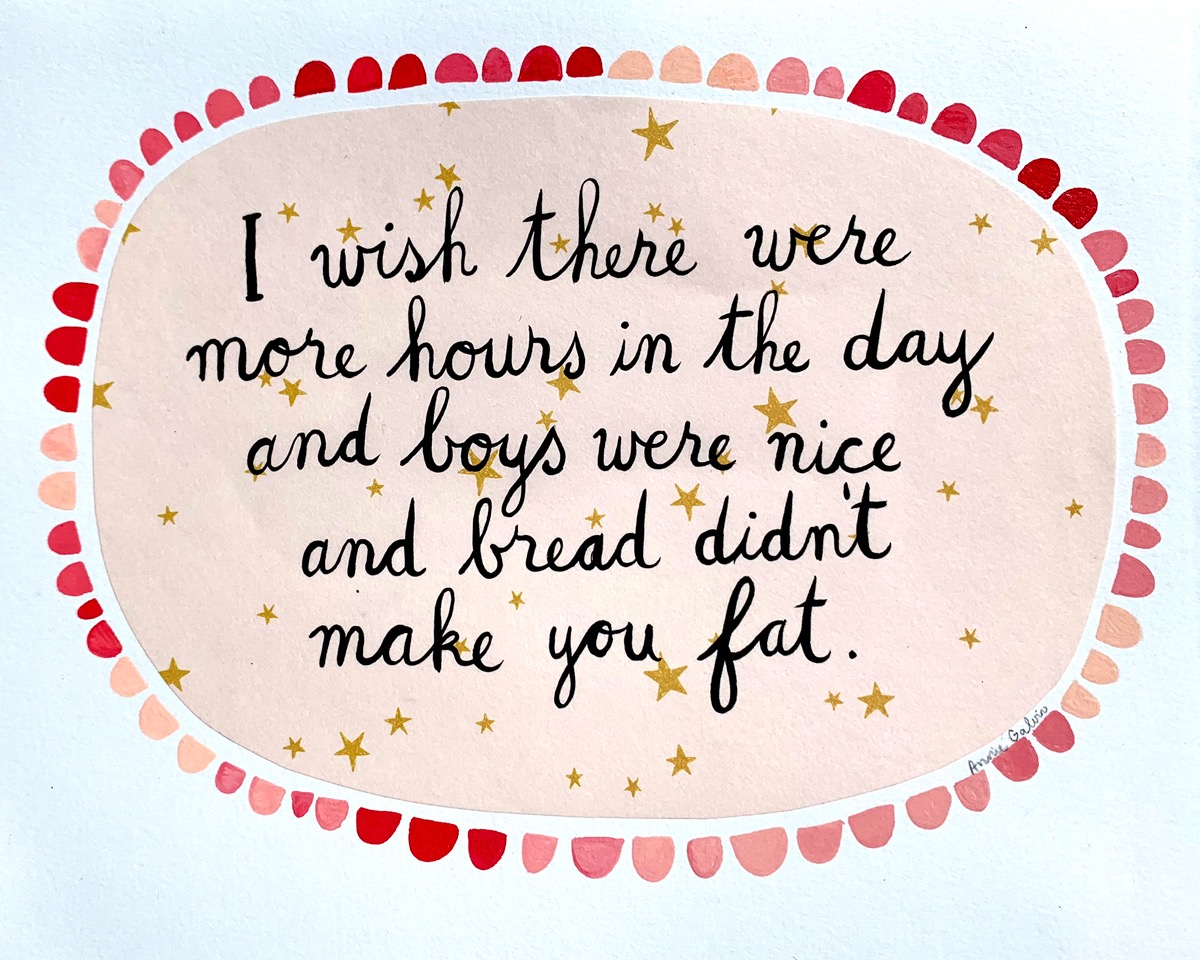 I wish there were
more hours in the day
and boys were nice
and bread didn't
make you fat.
Annie Galvin